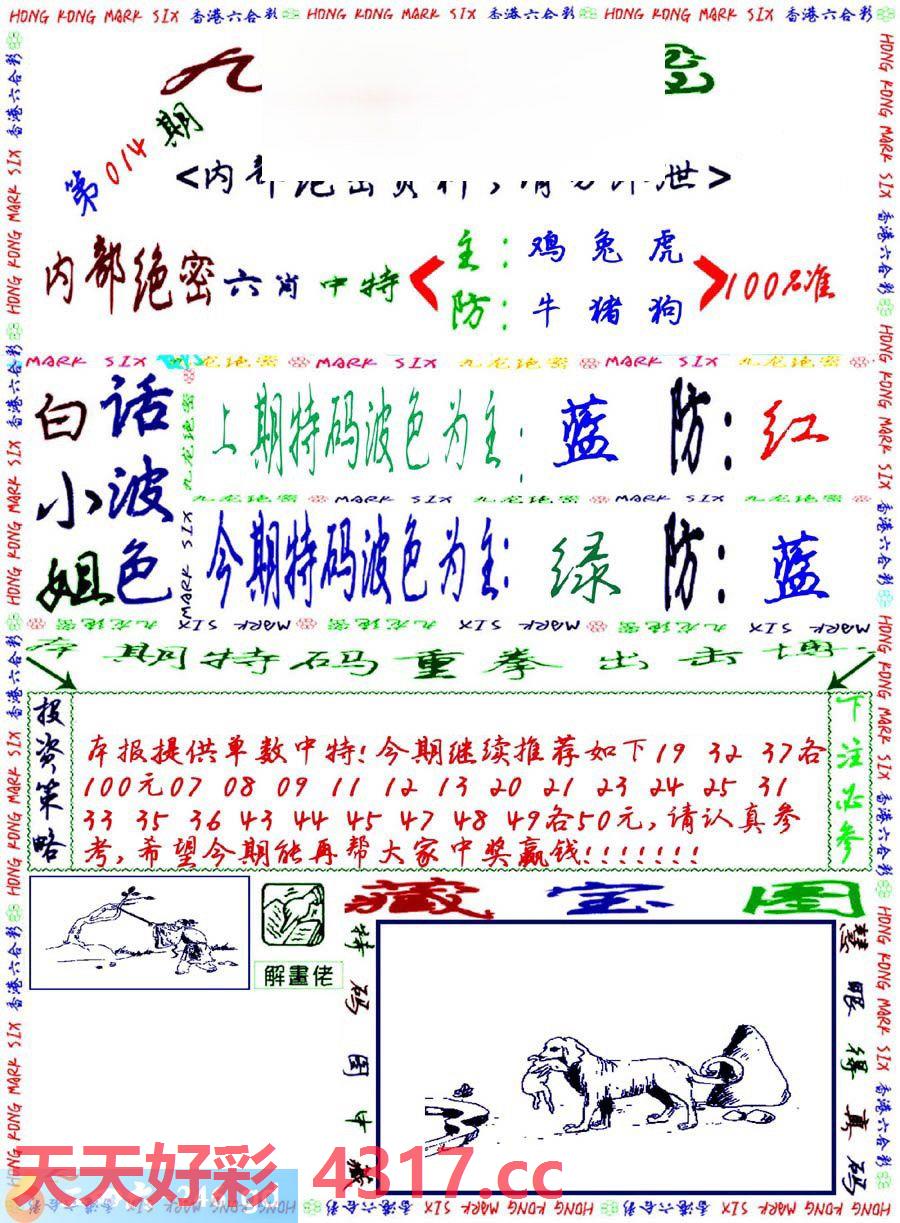 HONG KONG MARK SIX 香港六合彩 HONG KONG MARK SIX 香港六合彩 HONG KONG MARK SIX 香港六合彩
第014期
内部绝密六肖中特
主:鸡兔虎
防:牛猪狗
100%准
MARK SIX 九龙绝密 MARK SIX 九龙绝密 MARK SIX 九龙绝密
白话
小波
姐色
上期特码波色为主:蓝 防:红
九龙绝密 MARK SIX 九龙绝密 MARK SIX 九龙绝密
今期特码波色为主:绿 防:蓝
期特码重拳出击
投资策略
本报提供单数中特!今期继续推荐如下19 32 37各
100元07 08 09 11 12 13 20 21 23 24 25 31
33 35 36 43 44 45 47 48 49各50元,请认真参
考,希望今期能再帮大家中奖赢钱!!!!!!!
下注必参
解畫佬
藏宝图
特码图中藏
慧眼得真码
天天好彩 4317.cc